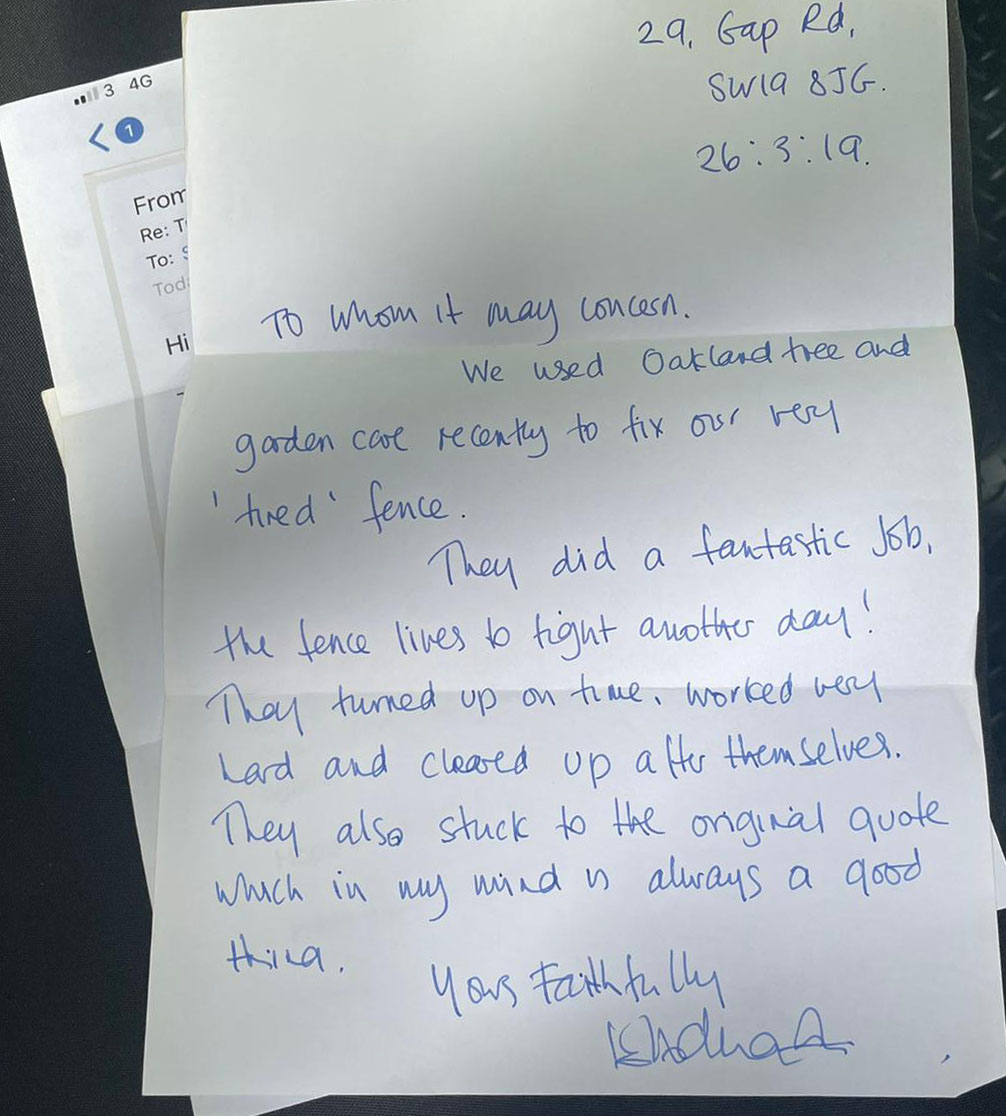 29, Gap Rd,
SW19 8JG.
26:3:19.
3 4G
1
From
Re: T
To: S
Toda
Hi
To whom it may concern.
We used Oakland tree and
garden care recently to fix our very
'tired' fence.
They did a fantastic job,
the fence lives to fight another day!
They turned up on time, worked very
hard and cleared up after themselves.
They also stuck to the original quote
which in my mind is always a good
thing.
Yours Faithfully